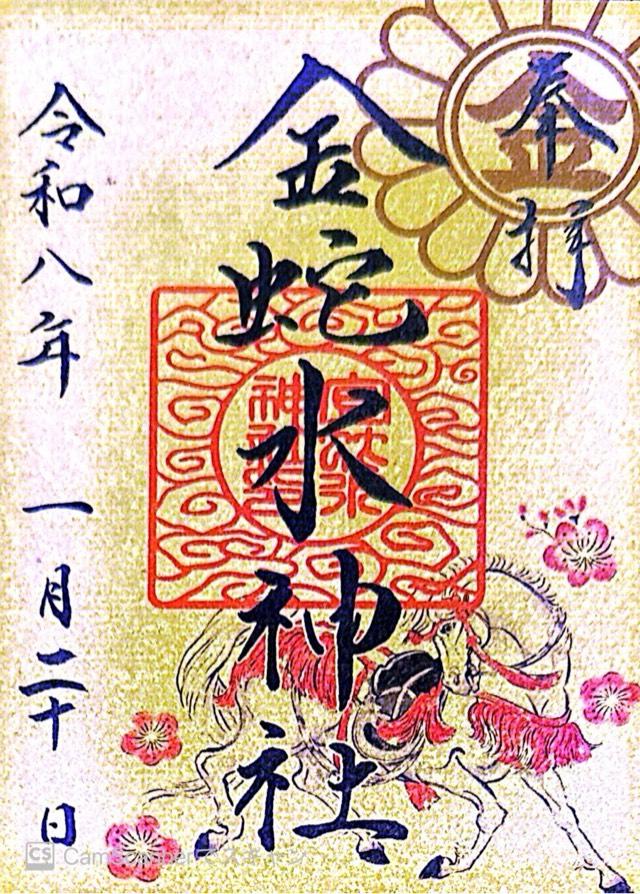 奉拝
金
金蛇水神社
令和八年 一月二十日
CS CamScannerでスキャン